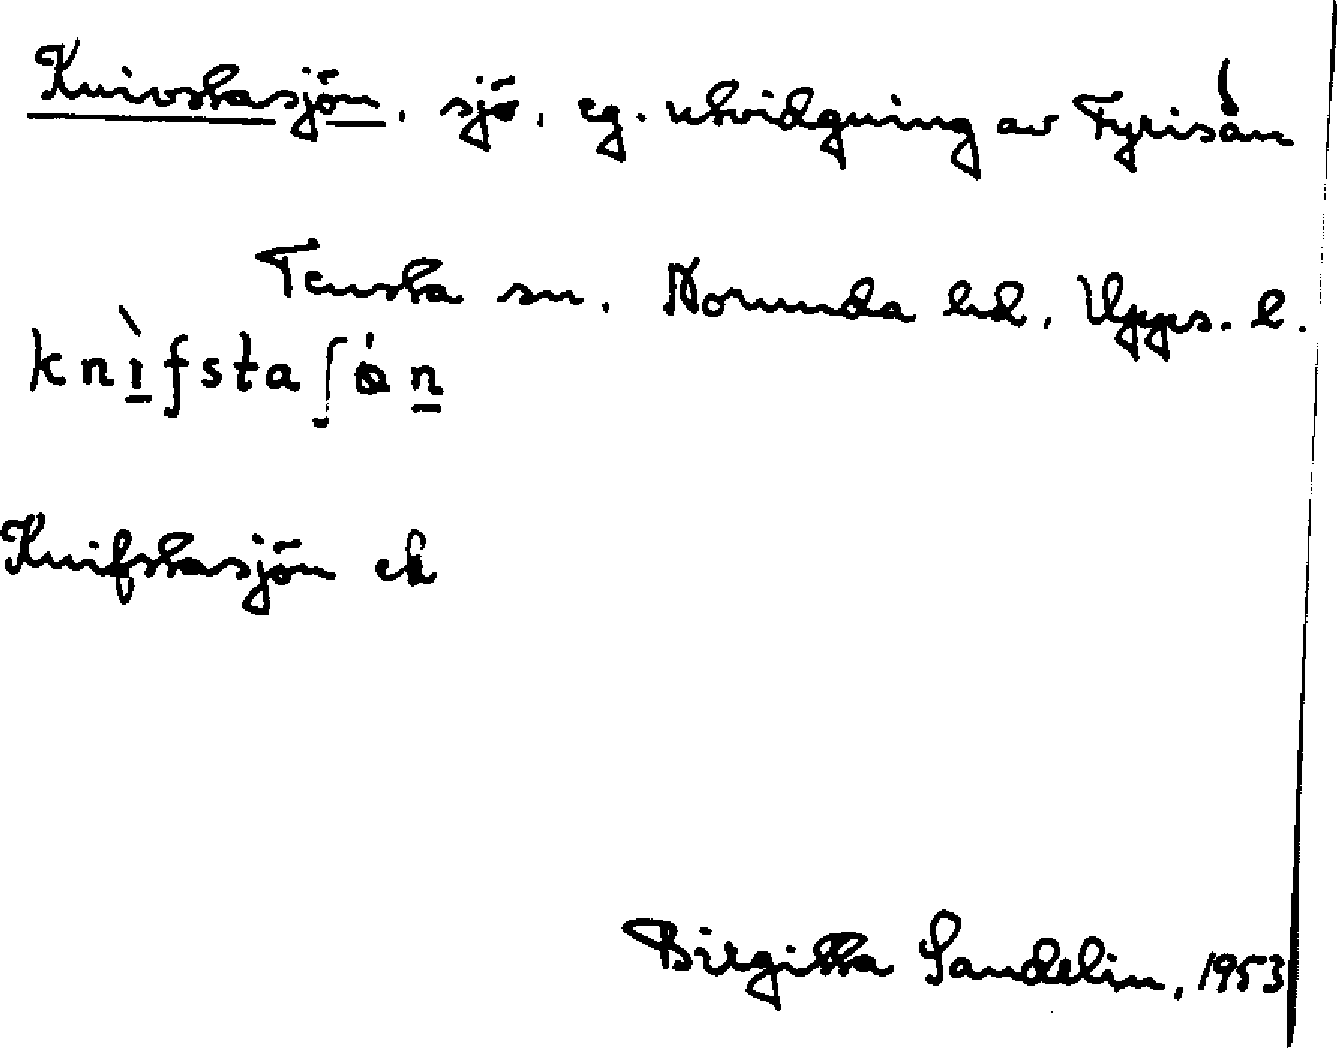 Knivstasjön, sjö, eg. utvidgning av Fyrisån
Tensta sn. Norunda hd, Upps. l.
knìfstaʃön
Knifstasjön ek
Birgitta Sandelin, 1953